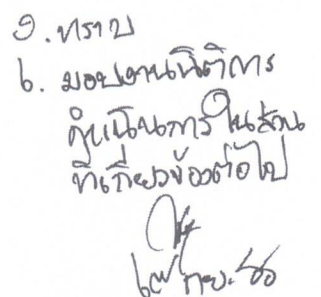 ๑. ทราบ
๒. มอบงานนิติการ
ดำเนินการในส่วน
ที่เกี่ยวข้องต่อไป